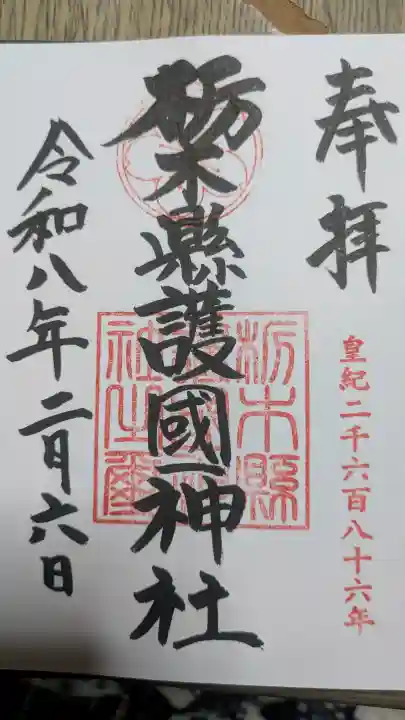 奉拝
皇紀二千六百八十六年
栃木縣護國神社
栃木縣護國神社之璽
令和八年二月六日